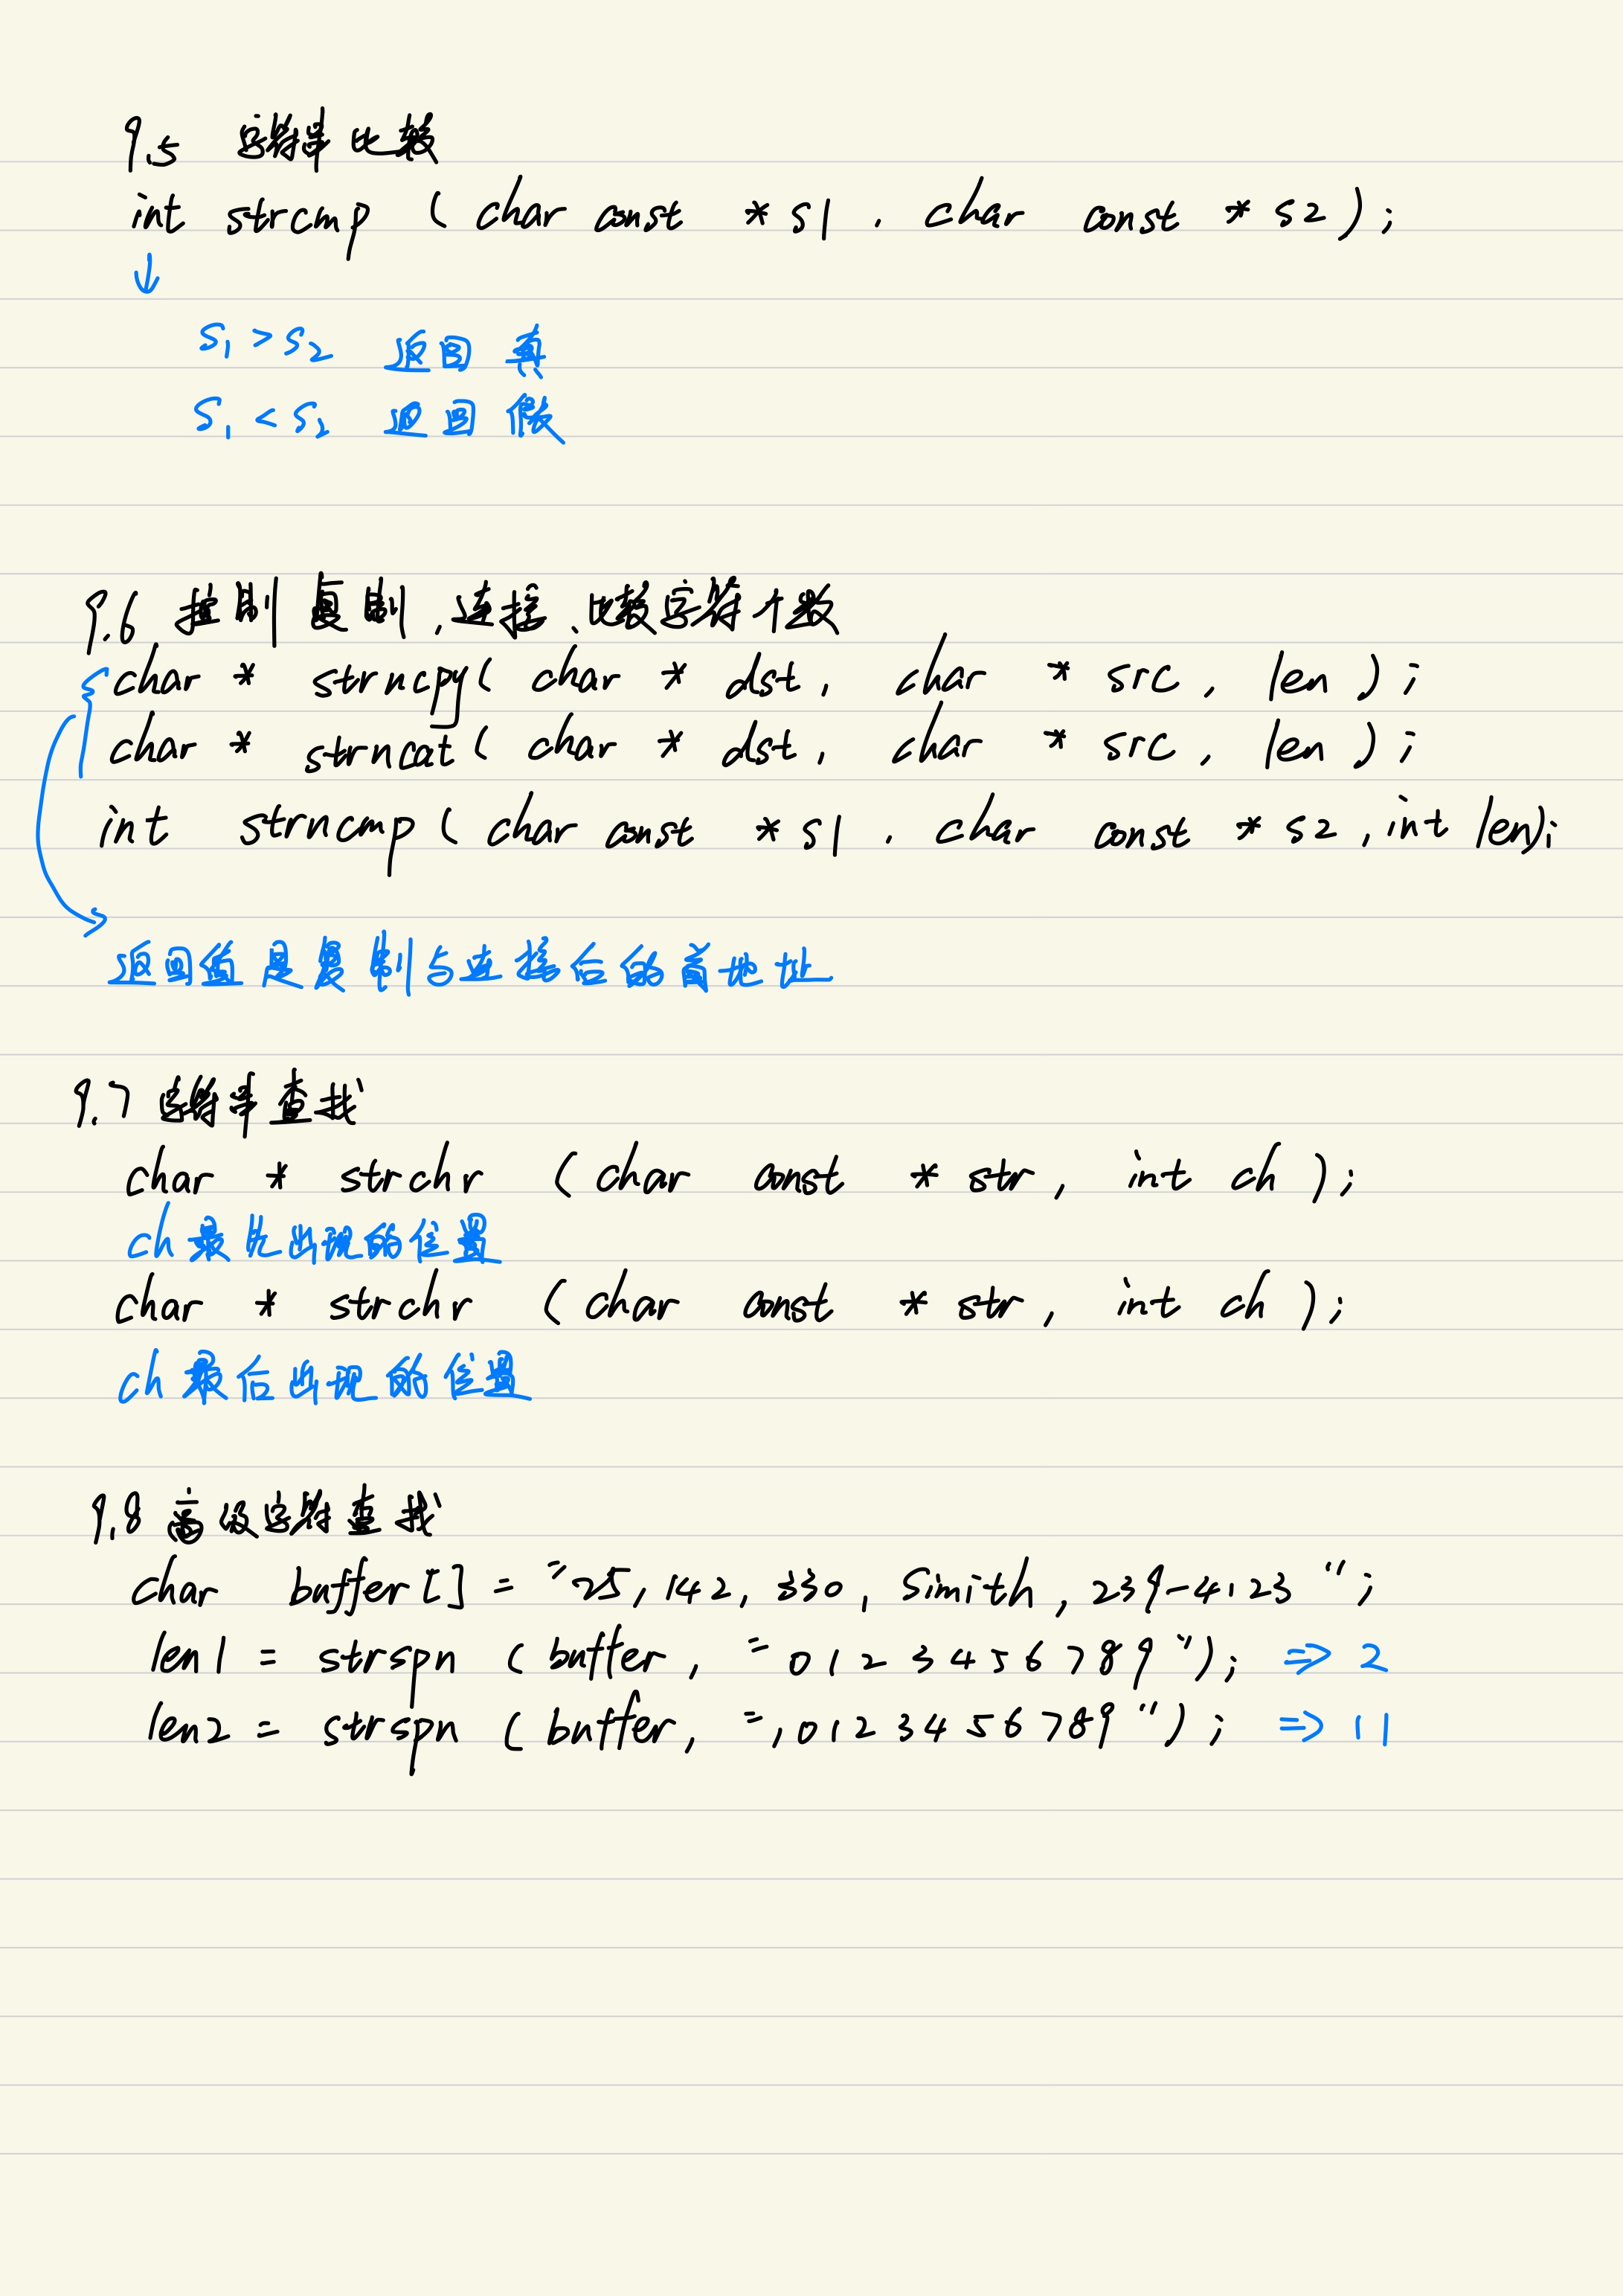 9.5 字符串比较
int strcmp ( char const * s1 , char const * s2 ) ;
↓
s₁ > s₂ 返回 真
s₁ < s₂ 返回 假
9.6 控制复制、连接、比较字符个数
char * strncpy ( char * dst , char * src , len ) ;
char * strncat ( char * dst , char * src , len ) ;
int strncmp ( char const * s1 , char const * s2 , int len ) ;
返回值是复制与连接后的首地址
9.7 字符串查找
char * strchr ( char const * str , int ch ) ;
ch 最先出现的位置
char * strchr ( char const * str , int ch ) ;
ch 最后出现的位置
9.8 高级字符查找
char buffer[] = "25,142,330,Simith,239-4123" ;
len1 = strspn ( buffer , "0123456789" ) ; ⇒ 2
len2 = strspn ( buffer , ",0123456789" ) ; ⇒ 11